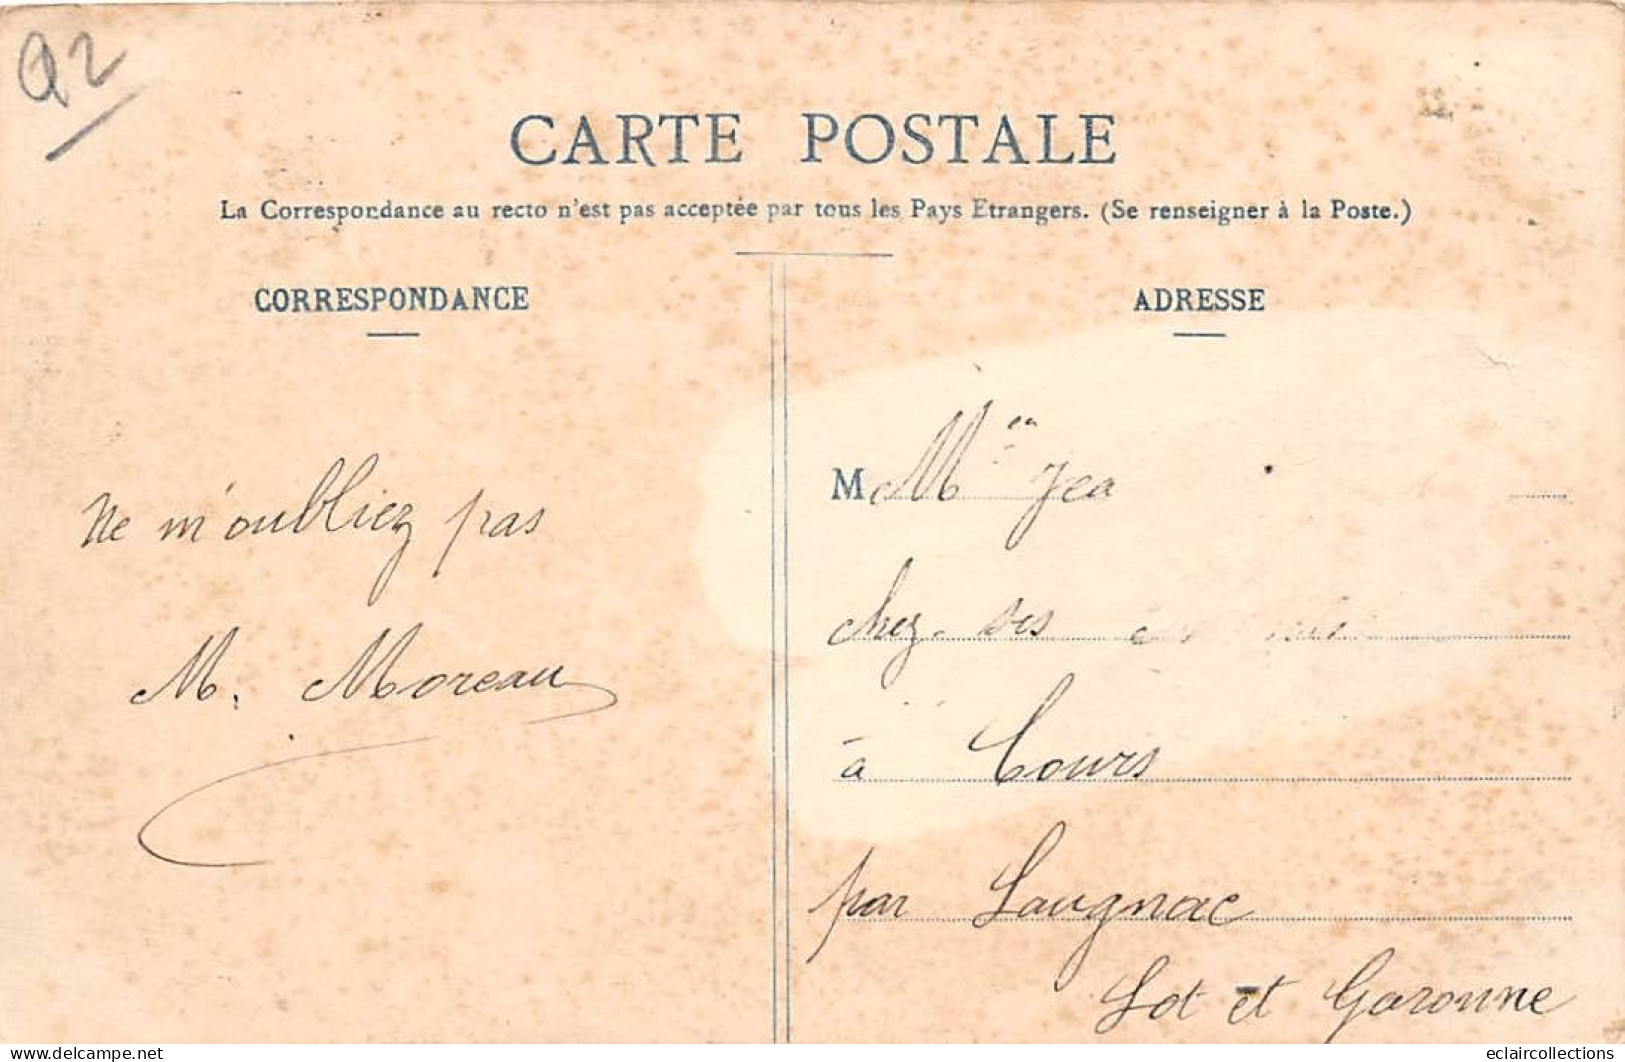 92
CARTE POSTALE
La Correspondance au recto n'est pas acceptée par tous les Pays Etrangers. (Se renseigner à la Poste.)
CORRESPONDANCE
Ne m'oubliez pas
M. Moreau
ADRESSE
M
chez ses
à Cours
par Laugnac
Lot et Garonne
eclaircollections